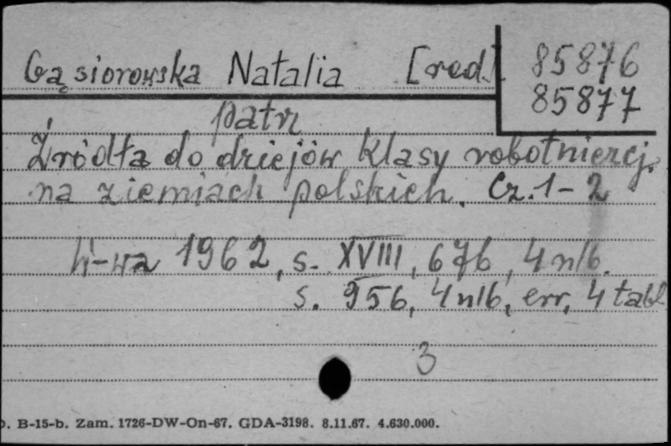 Gąsiorowska Natalia [red.] 85876
85877
patrz
Źródła do dziejów klasy robotniczej
na ziemiach polskich. Cz. 1-2
W-wa 1962, s. XVIII, 676, 4 nlb.
s. 956, 4 nlb, err, 4 tabl
3
B-15-b. Zam. 1726-DW-On-67. GDA-3198. 8.11.67. 4.630.000.